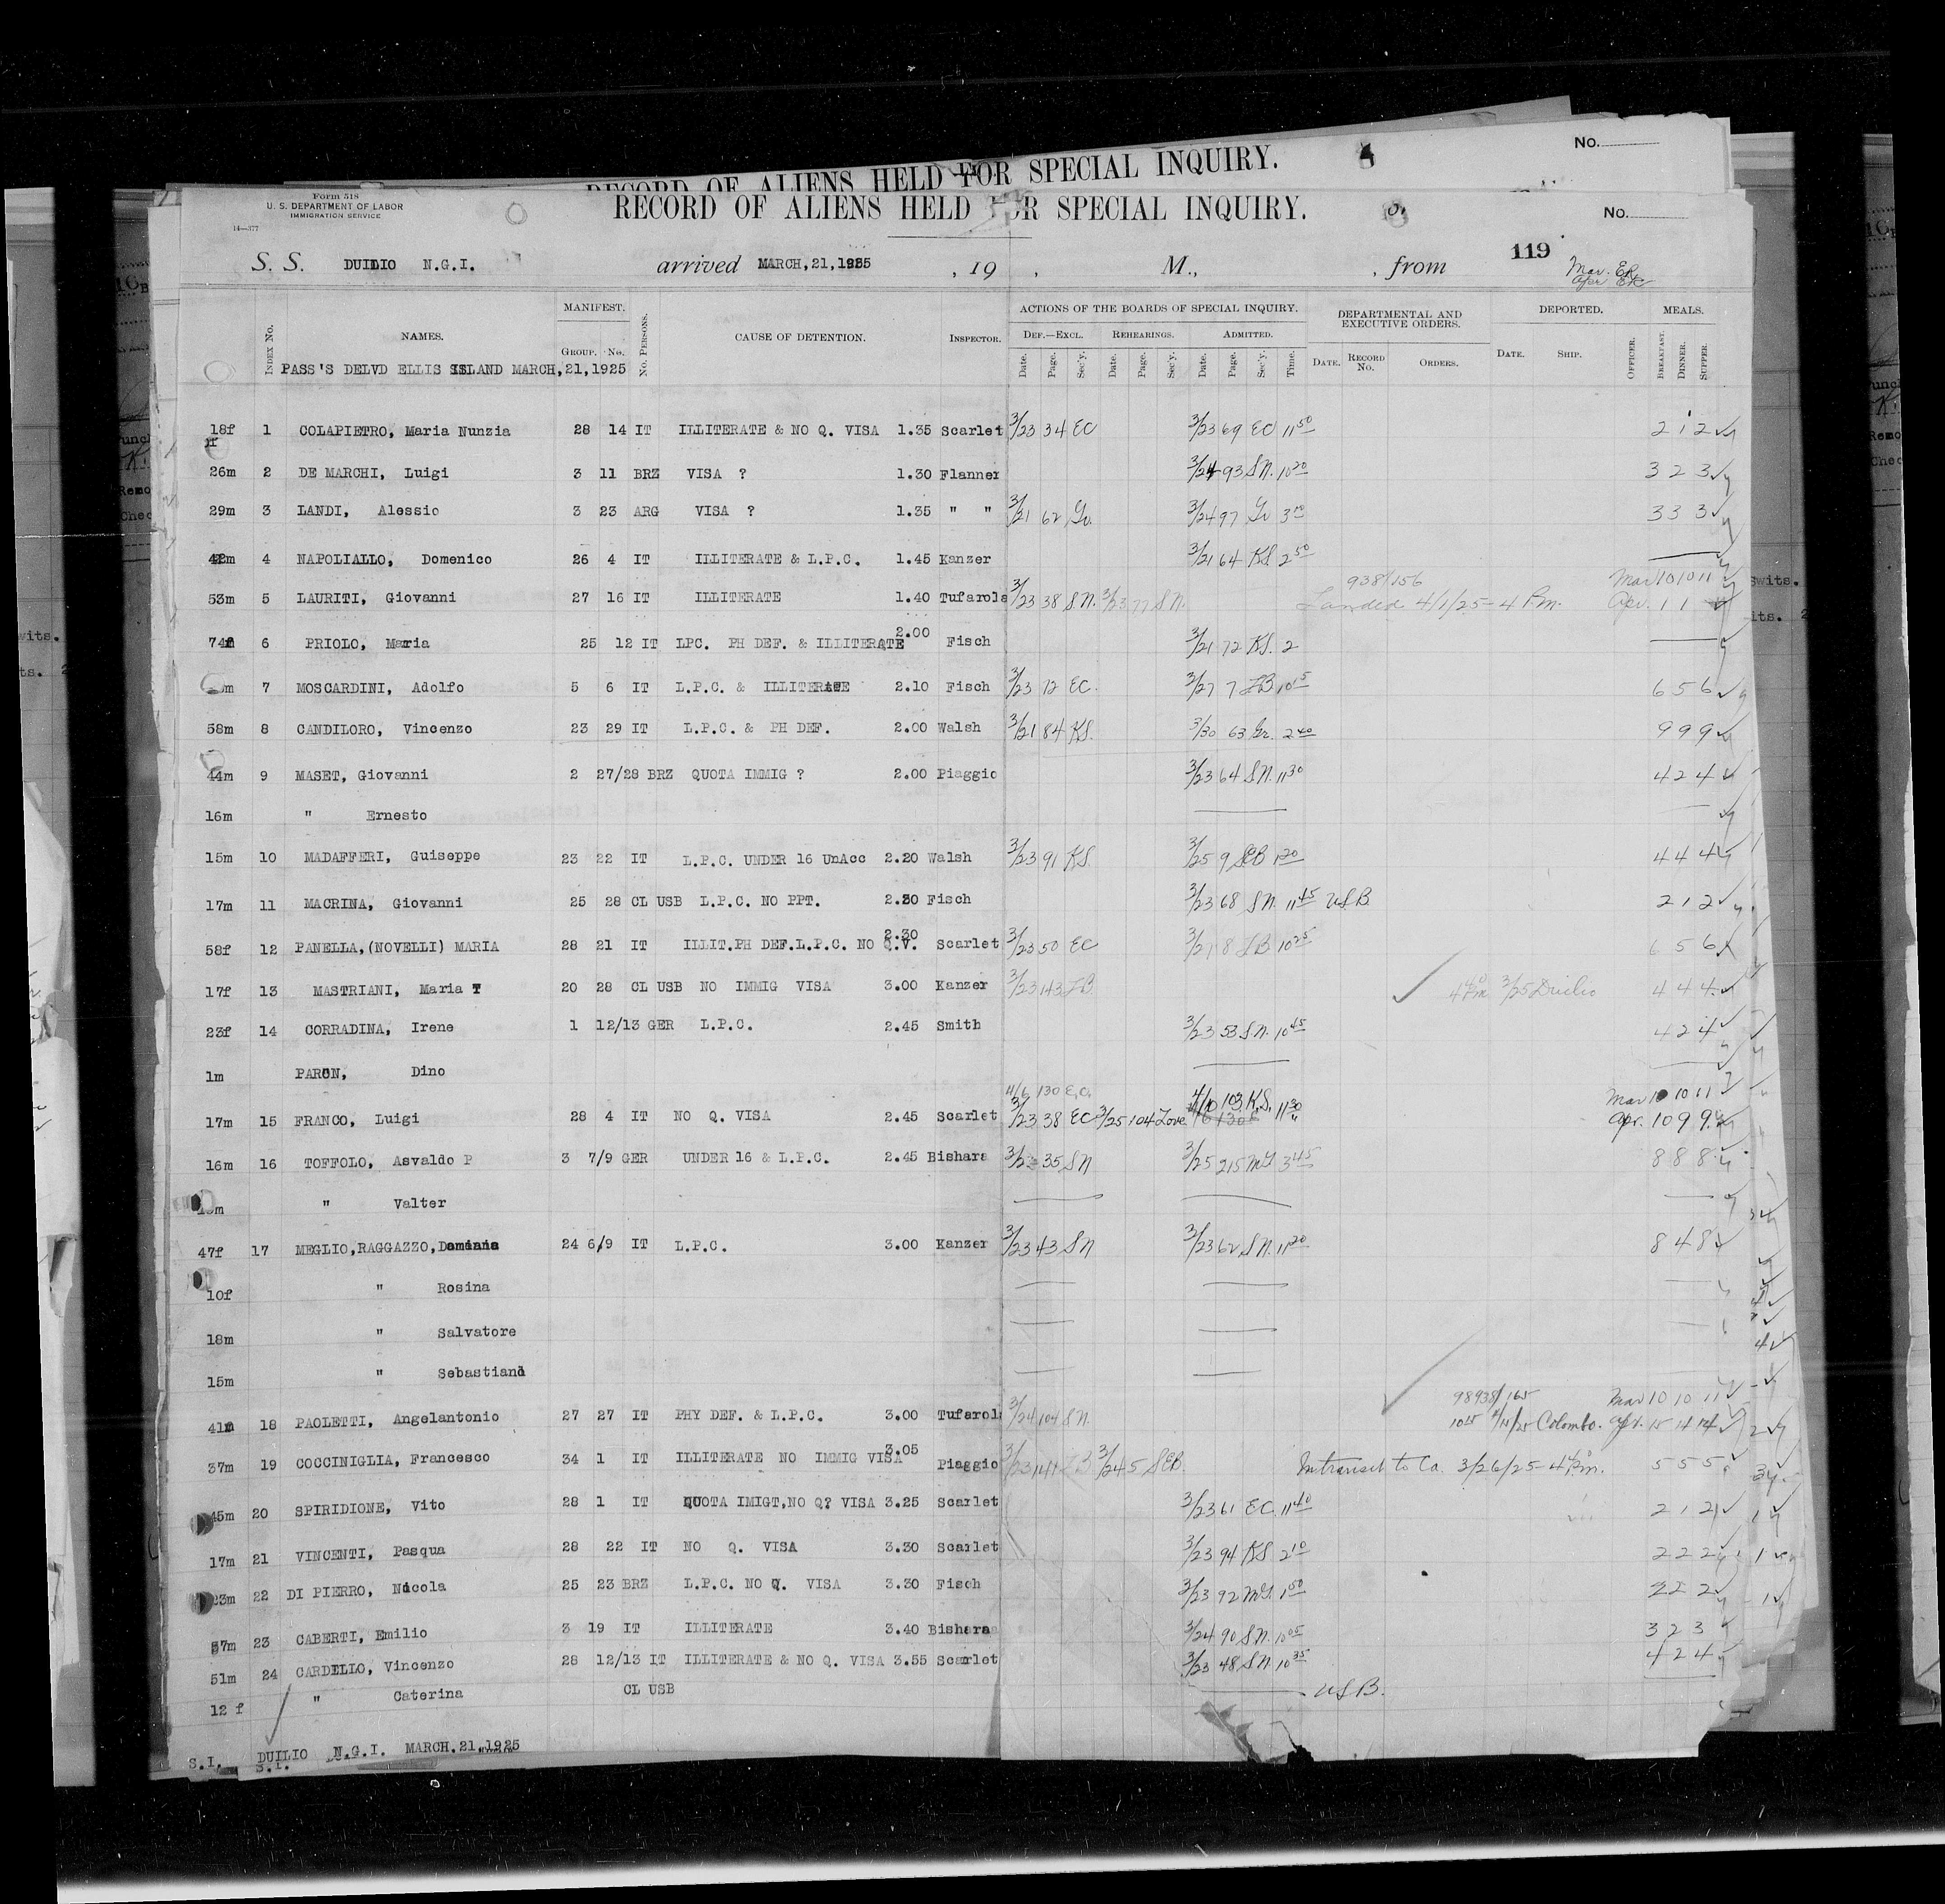 RECORD OF ALIENS HELD FOR SPECIAL INQUIRY. No.
Form 518
U. S. DEPARTMENT OF LABOR
IMMIGRATION SERVICE
14—377
RECORD OF ALIENS HELD FOR SPECIAL INQUIRY. No.
S. S. DUILIO N.G.I. arrived MARCH,21,1925 , 19 , M., , from 119
Mar. ER
Apr ER
INDEX No. NAMES. MANIFEST. GROUP. No. No. PERSONS. CAUSE OF DETENTION. INSPECTOR. ACTIONS OF THE BOARDS OF SPECIAL INQUIRY. DEPARTMENTAL AND EXECUTIVE ORDERS. DEPORTED. MEALS.
DEF.—EXCL. REHEARINGS. ADMITTED.
Date. Page. Sec'y. Date. Page. Sec'y. Date. Page. Sec'y. Time. DATE. RECORD No. ORDERS. DATE. SHIP. OFFICER. BREAKFAST. DINNER. SUPPER.
PASS'S DELVD ELLIS ISLAND MARCH,21,1925
18f 1 COLAPIETRO, Maria Nunzia 28 14 IT ILLITERATE & NO Q. VISA 1.35 Scarlet 3/23 34 EC 3/23 69 EC 11 50 2 1 2
26m 2 DE MARCHI, Luigi 3 11 BRZ VISA ? 1.30 Flanner 3/24 93 S.N. 10 20 3 2 3
29m 3 LANDI, Alessio 3 23 ARG VISA ? 1.35 " " 3/21 62 Gr. 3/24 97 Gr 3 10 3 3 3
42m 4 NAPOLIALLO, Domenico 26 4 IT ILLITERATE & L.P.C. 1.45 Kanzer 3/21 64 KS 2 50
938/156 Mar 10 10 11
53m 5 LAURITI, Giovanni 27 16 IT ILLITERATE 1.40 Tufarola 3/23 38 S.N. 3/23 77 S.N. Landed 4/1/25 - 4 P.m. Apr. 1 1
74f 6 PRIOLO, Maria 25 12 IT LPC. PH DEF. & ILLITERATE 2.00 Fisch 3/21 72 KS. 2
m 7 MOSCARDINI, Adolfo 5 6 IT L.P.C. & ILLITERATE 2.10 Fisch 3/23 72 EC. 3/27 7 LB 10 15 6 5 6
58m 8 CANDILORO, Vincenzo 23 29 IT L.P.C. & PH DEF. 2.00 Walsh 3/21 84 KS. 3/30 63 Gr. 2 40 9 9 9
44m 9 MASET, Giovanni 2 27/28 BRZ QUOTA IMMIG ? 2.00 Piaggio 3/23 64 S.N. 11 30 4 2 4
16m " Ernesto
15m 10 MADAFFERI, Guiseppe 23 22 IT L.P.C. UNDER 16 UnAcc 2.20 Walsh 3/23 91 KS. 3/25 9 SEB 1 20 4 4 4
17m 11 MACRINA, Giovanni 25 28 CL USB L.P.C. NO PPT. 2.30 Fisch 3/23 68 S.N. 11 45 USB. 2 1 2
58f 12 PANELLA,(NOVELLI) MARIA 28 21 IT ILLIT.PH DEF.L.P.C. NO Q.V. 2.30 Scarlet 3/23 50 EC 3/27 8 LB 10 25 6 5 6
17f 13 MASTRIANI, Maria T 20 28 CL USB NO IMMIG VISA 3.00 Kanzer 3/23 143 LB. 4 40 Pm 3/25 Duilio 4 4 4
23f 14 CORRADINA, Irene 1 12/13 GER L.P.C. 2.45 Smith 3/23 53 S.N. 10 45 4 2 4
1m PARON, Dino
4/6 130 E.C. 4/10 103 K.S. Mar 10 10 11
17m 15 FRANCO, Luigi 28 4 IT NO Q. VISA 2.45 Scarlet 3/23 38 EC 3/25 104 Love 11 30 Apr. 10 9 9
16m 16 TOFFOLO, Asvaldo P 3 7/9 GER UNDER 16 & L.P.C. 2.45 Bishara 35 SN 3/25 215 3 45 8 8 8
" Valter
47f 17 MEGLIO,RAGGAZZO, 24 6/9 IT L.P.C. 3.00 Kanzer 3/23 43 SN 3/23 62 S.N. 11 20 8 4 8
10f " Rosina
18m " Salvatore
15m " Sebastiano
98938/165 Mar 10 10 11
41m 18 PAOLETTI, Angelantonio 27 27 IT PHY DEF. & L.P.C. 3.00 Tufarol 3/24 104 S.N. Colombo. Apr. 15 14 14
37m 19 COCCINIGLIA, Francesco 34 1 IT ILLITERATE NO IMMIG VISA 3.05 Piaggio 3/24 5 SEB. Intransit to Ca. 3/26/25 - P.m. 5 5 5
45m 20 SPIRIDIONE, Vito 28 1 IT QUOTA IMIGT,NO Q? VISA 3.25 Scarlet 3/23 61 EC. 11 40 2 1 2
17m 21 VINCENTI, Pasqua 28 22 IT NO Q. VISA 3.30 Scarlet 3/23 94 KS 2 10 2 2 2
23m 22 DI PIERRO, Nicola 25 23 BRZ L.P.C. NO Q. VISA 3.30 Fisch 3/23 92 1 50 2 2 2
57m 23 CABERTI, Emilio 3 19 IT ILLITERATE 3.40 Bishara 3/24 90 S.N. 10 05 3 2 3
51m 24 CARDELLO, Vincenzo 28 12/13 IT ILLITERATE & NO Q. VISA 3.55 Scarlet 3/23 48 S.N. 10 35 4 2 4
12 f " Caterina CL USB USB.
S.I. DUILIO N.G.I. MARCH.21,1925
S.I.